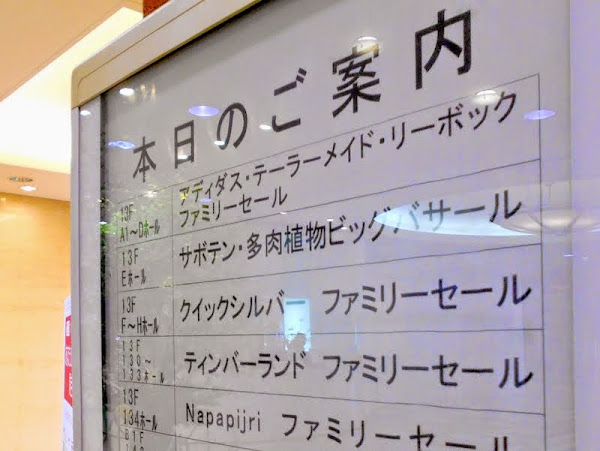 本日のご案内
13F
A1〜Dホール
アディダス・テーラーメイド・リーボック
ファミリーセール
13F
Eホール
サボテン・多肉植物ビッグバサール
13F
F〜Hホール
クイックシルバー ファミリーセール
13F
130〜
133ホール
ティンバーランド ファミリーセール
13F
134ホール
Napapijri ファミリーセール
B1F